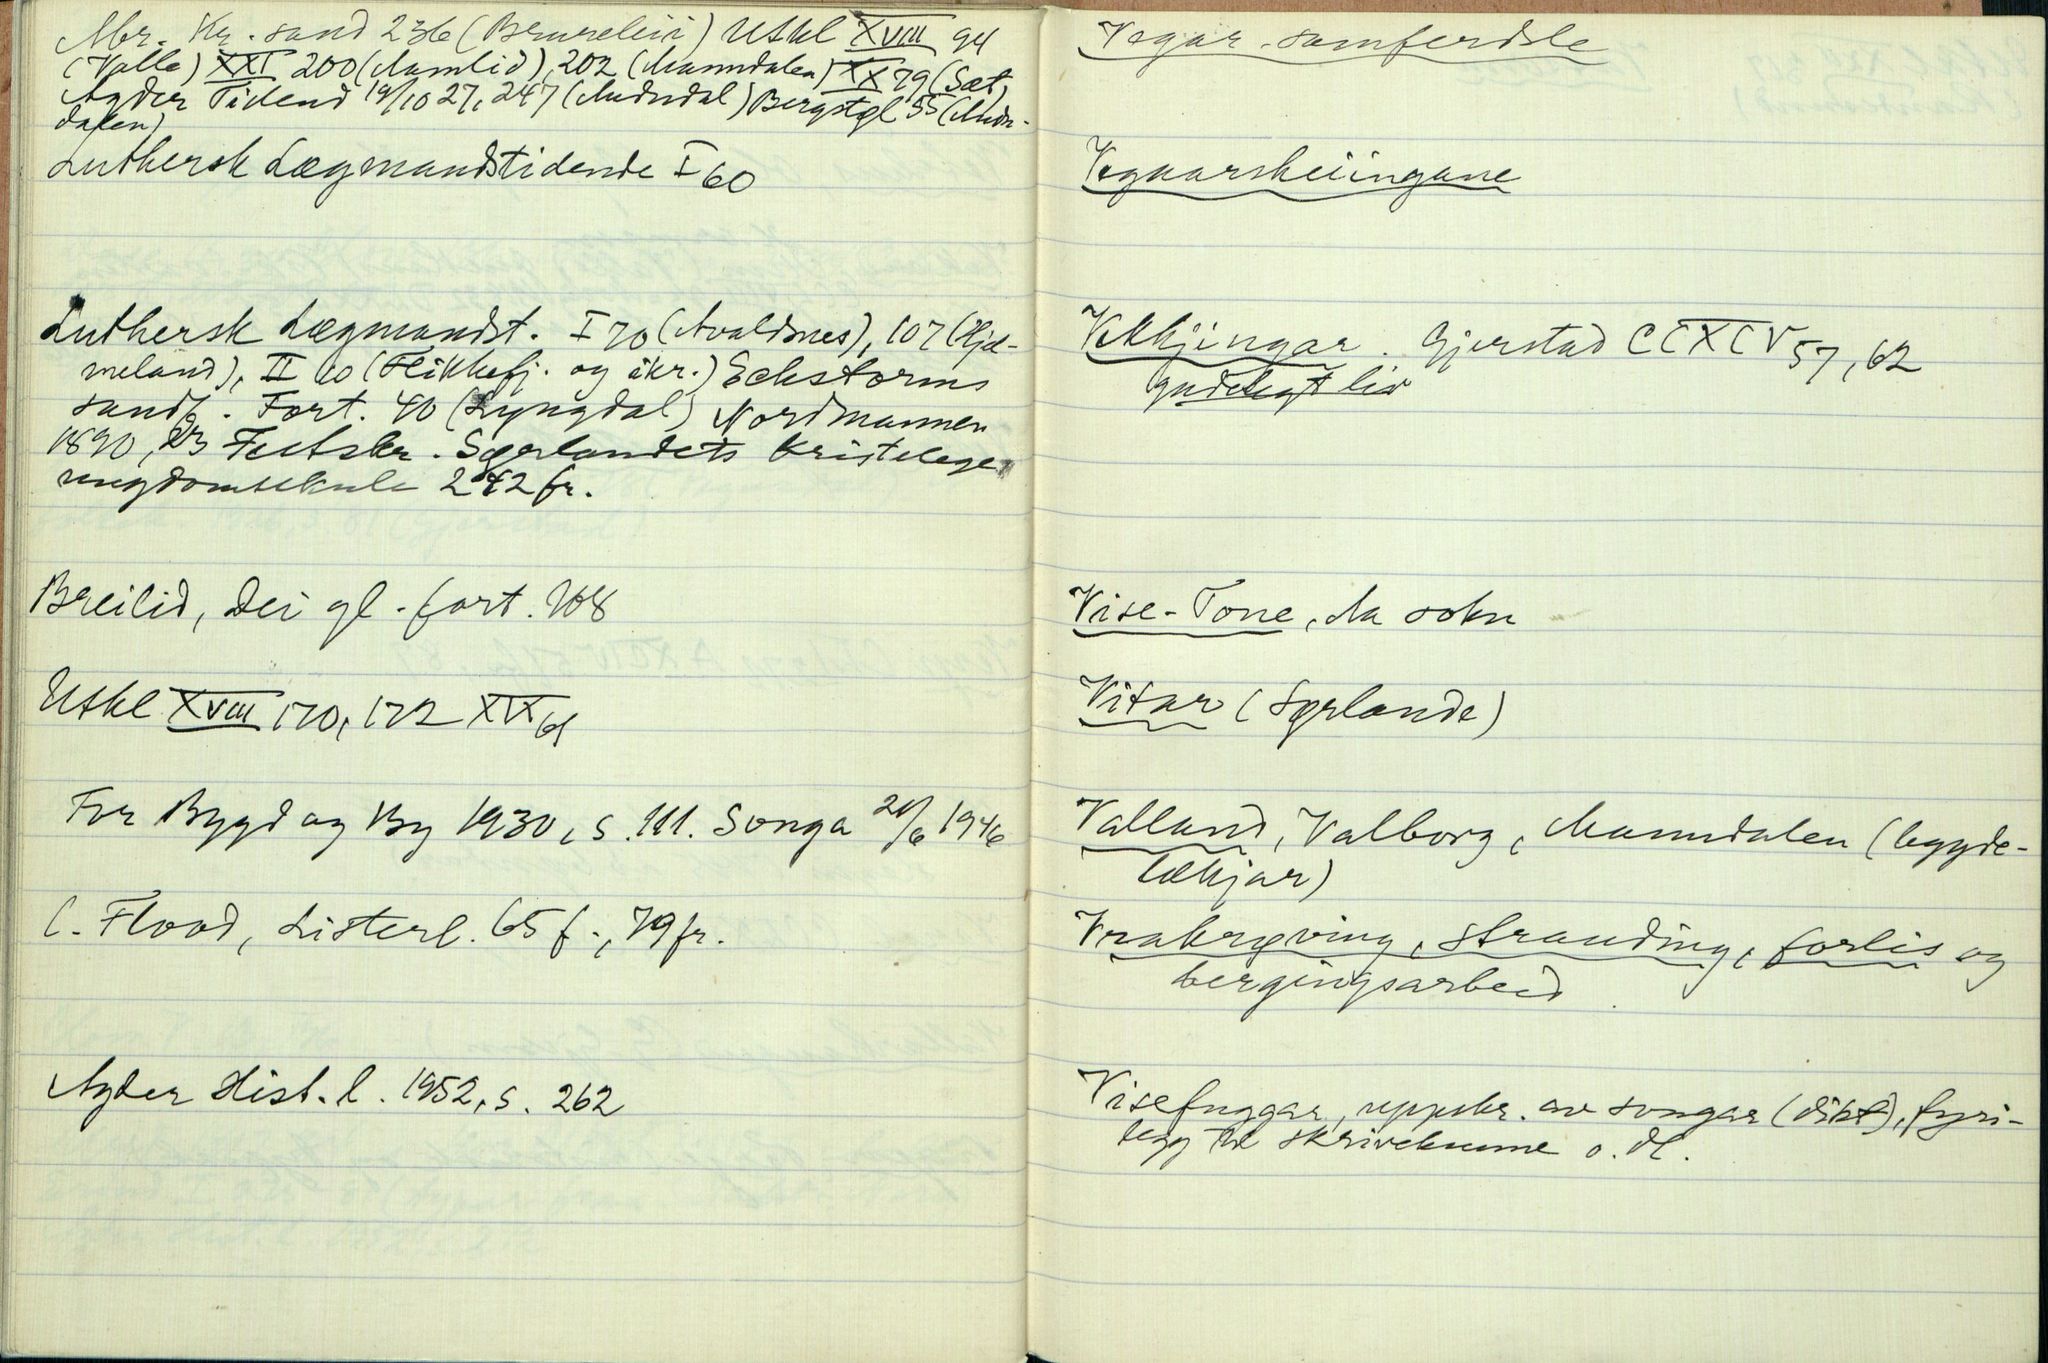 Kr.sand 236 (Brureleii) Utkl XVIII 94
(Valle) XXI 200 (Aamlid), 202 (Manndalen) XX 79 (Sæt.
Agder Tidend 19/10 27, 247 (Audndal) Bergstgl 55 (Audn-
dalen)
Luthersk Lægmandstidende I 60
Luthersk Lægmandst. I 70 (Avaldsnes), 107 (Hjel-
meland), II 10 (Flikkefj. og ikr.) Eckstorms
sandf. Fort. 40 (Lyngdal) Nordmannen
1890, Festskr. Sørlandets Kristelege
ungdomsskule 242 fr.
Breilid, Dei gl. fort. 108
Utkl XVIII 170, 172 XIX 61
For Bygd og By 1930, s. 111. Songa 20/6 1946
C. Flood, Listerl. 65 f., 79 fr.
Agder Hist. l. 1952, s. 262
Vegar. samferdsle
Vegaarsheiingane
Vekkjingar. Gjerstad CCXCV 57, 62
gudelegt liv
Vise-Tone, Aa sokn
Vitar (Sørlande)
Valland, Valborg, Manndalen (bygde-
lækjar)
Vrakrøving, stranding, forlis og
bergingsarbeid
Visefuggar, uppskr. av songar (dikt), fyri-
legg til skrivekunne o. dl.